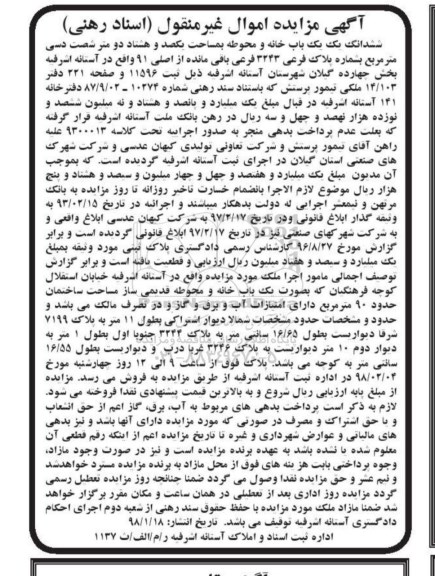 آگهی مزایده اموال غیرمنقول (اسناد رهنی)
ششدانگ یک باب خانه و محوطه بمساحت یکصد و هشتاد دو متر شصت دسی
مترمربع بشماره پلاک فرعی ۳۲۴۳ فرعی باقی مانده از اصلی ۹۱ واقع در آستانه اشرفیه
بخش چهارده گیلان شهرستان آستانه اشرفیه ذیل ثبت ۱۱۵۹۶ و صفحه ۲۲۱ دفتر
۱۴/۱۰۳ ملکی تیمور پرستش که باستناد سند رهنی شماره ۱۰۲۷۴ – ۸۷/۹/۰۲ دفترخانه
۱۴۱ آستانه اشرفیه در قبال مبلغ یک میلیارد و پانصد و هشتاد و نه میلیون ششصد و
نوزده هزار نهصد و چهل و سه ریال در رهن بانک ملت آستانه اشرفیه قرار گرفته
که بعلت عدم پرداخت بدهی منجر به صدور اجراییه تحت کلاسه ۹۳۰۰۰۱۳ علیه
راهن آقای تیمور پرستش و شرکت تعاونی تولیدی کیهان عدسی و شرکت شهرک
های صنعتی استان گیلان در اجرای ثبت آستانه اشرفیه گردیده است. که بموجب
آن مدیون مبلغ یک میلیارد و هفتصد و چهل و چهار میلیون و سیصد و هشتاد و پنج
هزار ریال موضوع لازم الاجرا بانضمام خسارت تاخیر روزانه تا روز مزایده به بانک
مرتهن و نیمعشر اجرایی له دولت بدهکار میباشند و اجرائیه در تاریخ ۹۳/۰۲/۱۵ به
وثیقه گذار ابلاغ قانونی ودر تاریخ ۹۷/۲/۱۷ به شرکت کیهان عدسی ابلاغ واقعی و
به شرکت شهرکهای صنعتی نیز در تاریخ ۹۷/۲/۱۷ ابلاغ قانونی گردیده است و برابر
گزارش مورخ ۹۶/۸/۲۷ کارشناس رسمی دادگستری پلاک ثبتی مورد وثیقه بمبلغ
یک میلیارد و سیصد و هفتاد میلیون ریال ارزیابی و قطعیت یافته است و برابر گزارش
توصیف اجمالی مامور اجرا ملک مورد مزایده واقع در آستانه اشرفیه خیابان استقلال
کوچه فرهنگیان که بصورت یک باب خانه و محوطه قدیمی ساز مساحت ساختمان
حدود ۹۰ مترمربع دارای امتیازات آب و برق و گاز و در تصرف مالک می باشد و
حدود و مشخصات حدود مشخصات شمالا دیوار اشتراکی بطول ۱۱ متر به پلاک ۷۱۹۹
شرقا دیواریست بطول ۱۶/۶۵ سانتی متر به پلاک ۳۲۴۴ جنوبا اول بطول ۱ متر به
دیوار دوم ۱۰ متر دیواریست به پلاک ۳۲۴۶ غربا درب و دیواریست بطول ۱۶/۵۵
سانتی متر به کوچه می باشد. پلاک فوق از ساعت ۹ الی ۱۲ روز چهارشنبه مورخ
۹۸/۰۲/۰۴ در اداره ثبت آستانه اشرفیه از طریق مزایده به فروش می رسد. مزایده
از مبلغ پایه ارزیابی ریال شروع و به بالاترین قیمت پیشنهادی نقدا فروخته می شود.
لازم به ذکر است پرداخت بدهی های مربوط به آب، برق، گاز اعم از حق انشعاب
و یا حق اشتراک و مصرف در صورتی که مورد مزایده دارای آنها باشد و نیز بدهی
های مالیاتی و عوارض شهرداری و غیره تا تاریخ مزایده اعم از اینکه رقم قطعی آن
معلوم شده یا نشده باشد به عهده برنده مزایده است و نیز در صورت وجود مازاد،
وجوه پرداختی بابت هزینه های فوق از محل مازاد به برنده مزایده مسترد خواهدشد
و نیم عشر و حق مزایده نقدا وصول می گردد ضمنا چنانچه روز مزایده تعطیل رسمی
گردد مزایده روز اداری بعد از تعطیلی در همان ساعت و مکان مقرر برگزار خواهد
شد ضمنا مازاد ملک مورد مزایده با حفظ حقوق سند رهنی از شعبه دوم اجرای احکام
دادگستری آستانه اشرفیه توقیف می باشد. تاریخ انتشار: ۹۸/۱/۱۸
اداره ثبت اسناد و املاک آستانه اشرفیه ر/م/الف/ث ۱۱۳۷